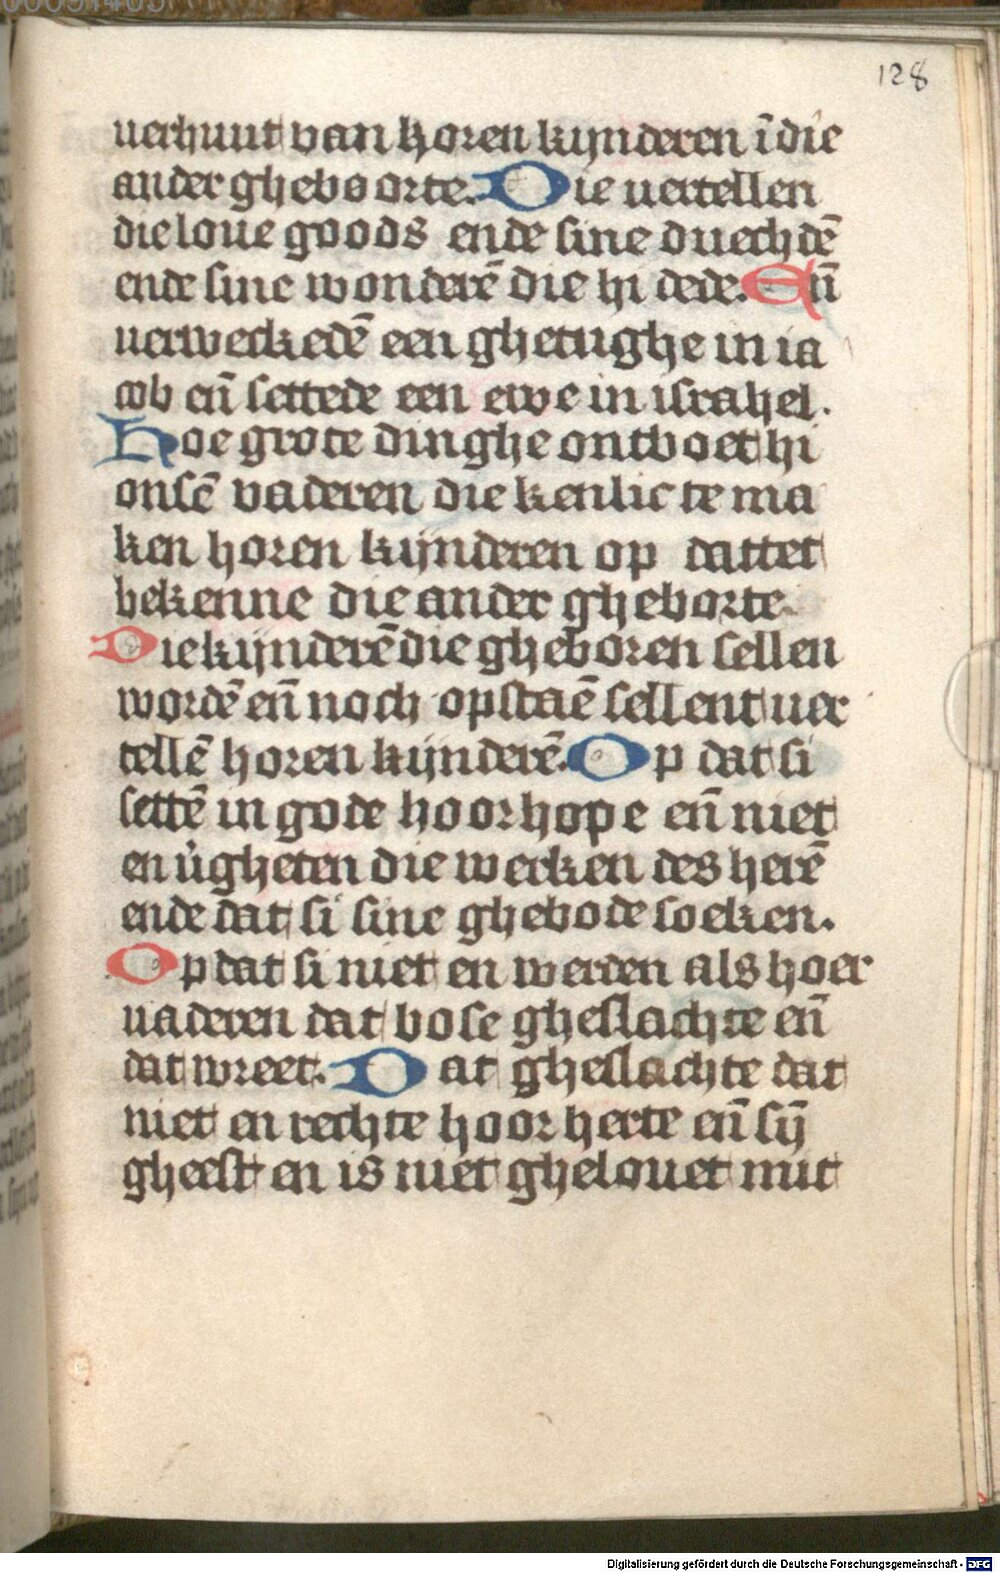 128
uerhuut van horen kijnderen ī die
ander gheboorte. Die uertellen
die loue goods ende sine duechdē
ende sine wonderē die hi dede. En̄
uerweckedē een ghetughe in ia
cob en̄ settede een ewe in israhel.
Hoe grote dinghe ontboet hi
onsē vaderen die kenlic te ma
ken horen kijnderen op dattet
bekenne die ander gheborte.
Die kijnderē die gheboren sellen
wordē en̄ noch opstaē sellent uer
tellē horen kijnderē. Op dat si
settē in gode hoor hope en̄ niet
en ůgheten die wercken des herē
ende dat si sine ghebode soeken.
Op dat si niet en werden als hoer
uaderen dat bose gheslachte en̄
dat wreet. Dat gheslachte dat
niet en rechte hoor herte en̄ sij̄
gheest en is niet ghelouet mit
Digitalisierung gefördert durch die Deutsche Forschungsgemeinschaft - DFG